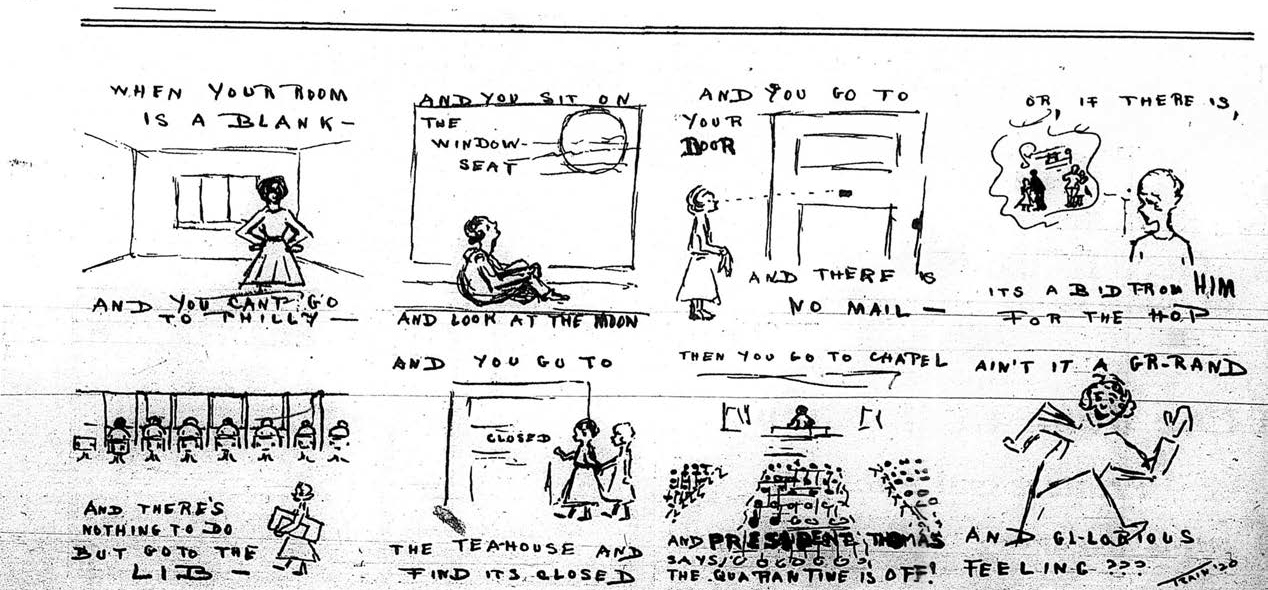 WHEN YOUR ROOM
IS A BLANK—
AND YOU CANT GO
TO PHILLY—
AND YOU SIT ON
THE
WINDOW-
SEAT
AND LOOK AT THE MOON
AND YOU GO TO
YOUR
DOOR
AND THERE IS
NO MAIL—
OR, IF THERE IS,
ITS A BID FROM HIM
FOR THE HOP
AND THERE'S
NOTHING TO DO
BUT GO TO THE
LIB—
AND YOU GO TO
CLOSED
THE TEAHOUSE AND
FIND ITS CLOSED
THEN YOU GO TO CHAPEL
AND PRESIDENT THOMAS
SAYS,
THE QUARANTINE IS OFF!
AIN'T IT A GR-RAND
AND GL-LORIOUS
FEELING???
TRAIN '20